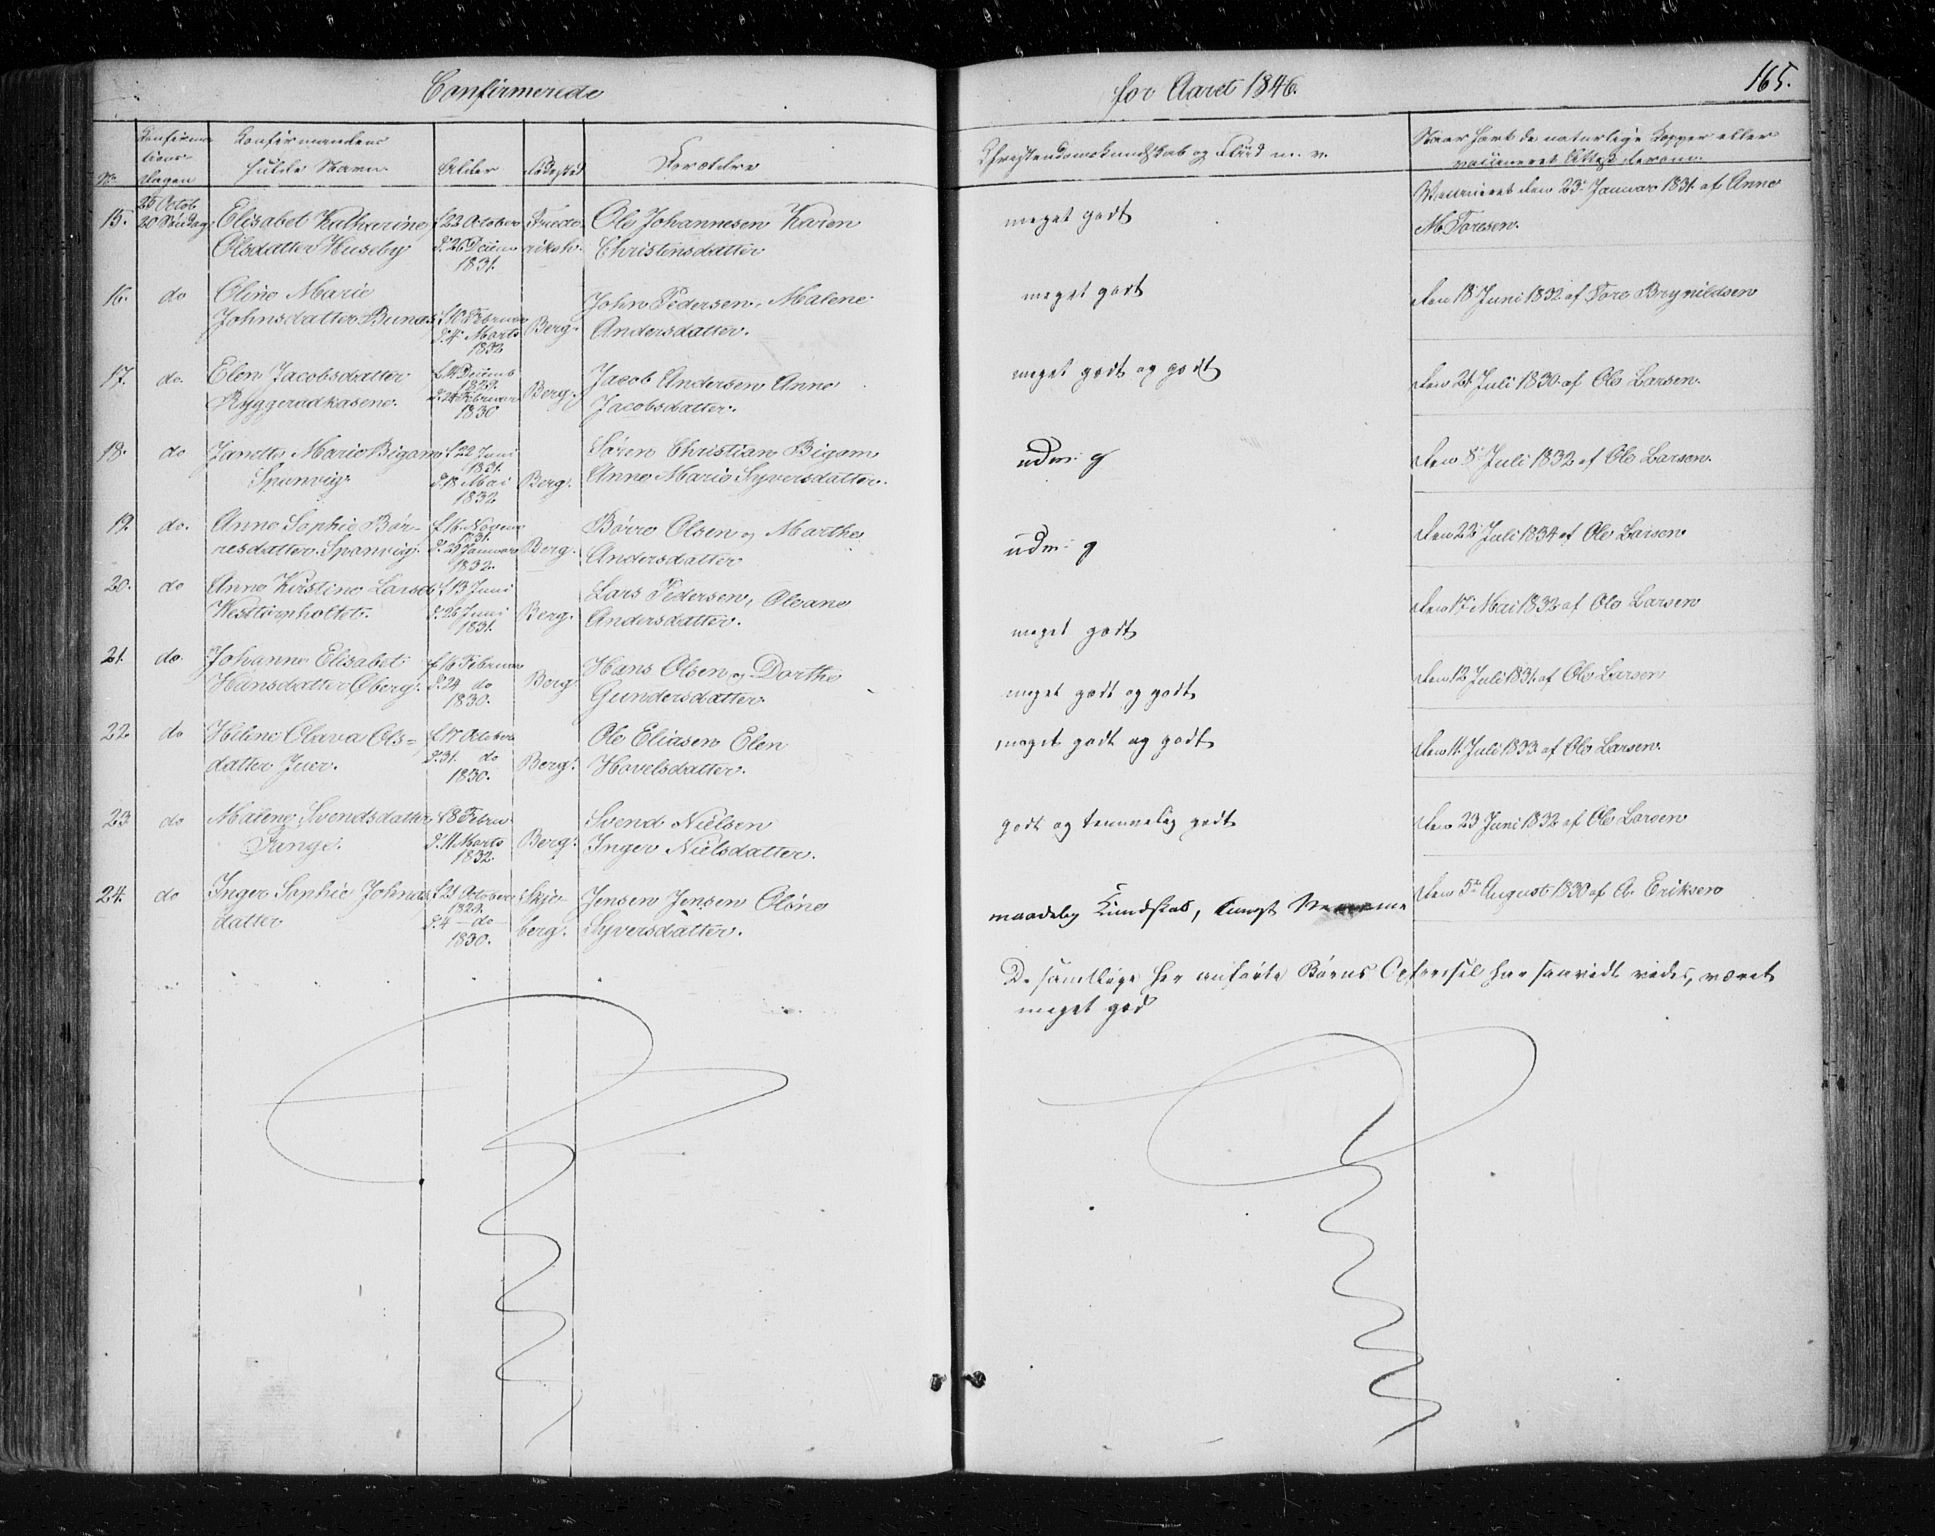 Confirmerede
for Aaret 1846.
165.
No
Confirmations-Dagen
Confirmandens fulde Navn.
Alder
Fødested
Forældre
Christendomskundskab og Flid m. v.
Naar havt de naturlige Kopper eller
vaccineret Attest derom.
15. 25 Octob 20 Søndag Elisabet Katharine f. 22 October Frede- Ole Johannesen Karen meget godt Vaccineret den 23' Januar 1831. af Anne
Olsdatter Huseby d. 26 Decem riksh. Christensdatter M. Toresen.
1831.
16. do Oline Marie John Pedersen, Malene meget godt den 18 Juni 1832 af Tore Brynildsen
Johnsdatter Bunæs f. 10 Februar Berg. Andersdatter.
d. 4 Marts
1832
17. do. Elen Jacobsdatter f. 14 Decemb Jacob Andersen Anne meget godt og godt den 21 Juli 1830 af Ole Larsen.
Ryggeradkasene. 1829. Berg. Jacobsdatter.
d. 24 Februar
1830
18. do Janette Marie Bigom f. 22 Juni Søren Christian Bigom udm: g den 8' Juli 1832 af Ole Larsen.
Spunvig. 1831. Berg. Anne Marie Syversdatter.
d. 18 Mai
1832
19. do. Anne Sophie Bør- f. 16 Novem Børre Olsen og Marthe udm: g den 22' Juli 1834 af Ole Larsen
resdatter Spunvig. 1831. Berg. Andersdatter
d. 29 Januar
1832.
20. do Anne Kirstine Larsd. f. 13 Juni Lars Pedersen, Oleane meget godt den 17' Mai 1832 af Ole Larsen
Westtorpholtet. d. 26 Juni Berg. Andersdatter.
1831.
21. do. Johanne Elisabet f. 16 Februar Hans Olsen og Dorthe meget godt og godt den 12 Juli 1831. af Ole Larsen
Hansdatter Oberg. d. 24 do Berg. Gundersdatter.
1830.
22. do Heline Olava Ols= f. 17 October Ole Eliasen Elen meget godt og godt den 11. Juli 1833 af Ole Larsen.
datter Juer. d. 31. do Berg. Hovelsdatter.
1830.
23. do Malene Svendsdatter f. 8 Febru Svend Nielsen godt og temmelig godt den 23 Juni 1832 af Ole Larsen
Tunge. d. 11 Marts Berg. Inger Nielsdatter.
1832.
24. do Inger Sophie Johnas f. 21 October Skje- Jensen Jensen Oline maadelig Kundskab, tungt Nemme den 5te August 1830 af A. Eriksen
datter 1829. berg. Syversdatter.
d. 4 do
1830.
De samtlige her anførte Børns Opførsel har saavidt vides, været
meget god